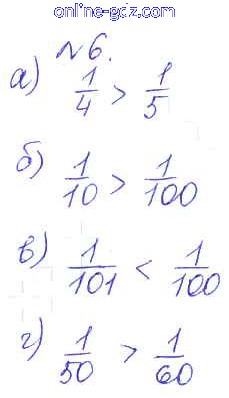 online-gdz.com
№6.
а) 1/4 > 1/5
б) 1/10 > 1/100
в) 1/101 < 1/100
г) 1/50 > 1/60